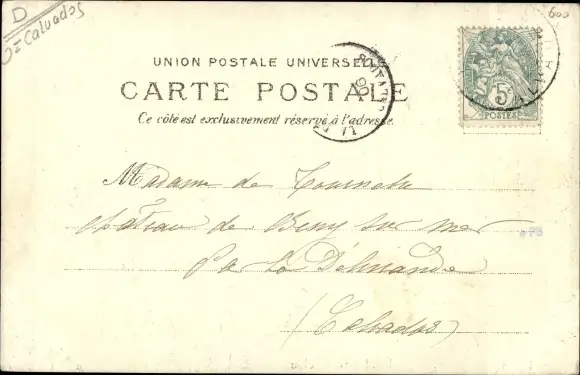 D
Calvados
600
UNION POSTALE UNIVERSELLE
CARTE POSTALE
Ce côté est exclusivement réservé à l'adresse.
5c
POSTES
CALVADOS
Madame de
château de Beny sur mer
par la Délivrande
(Calvados)